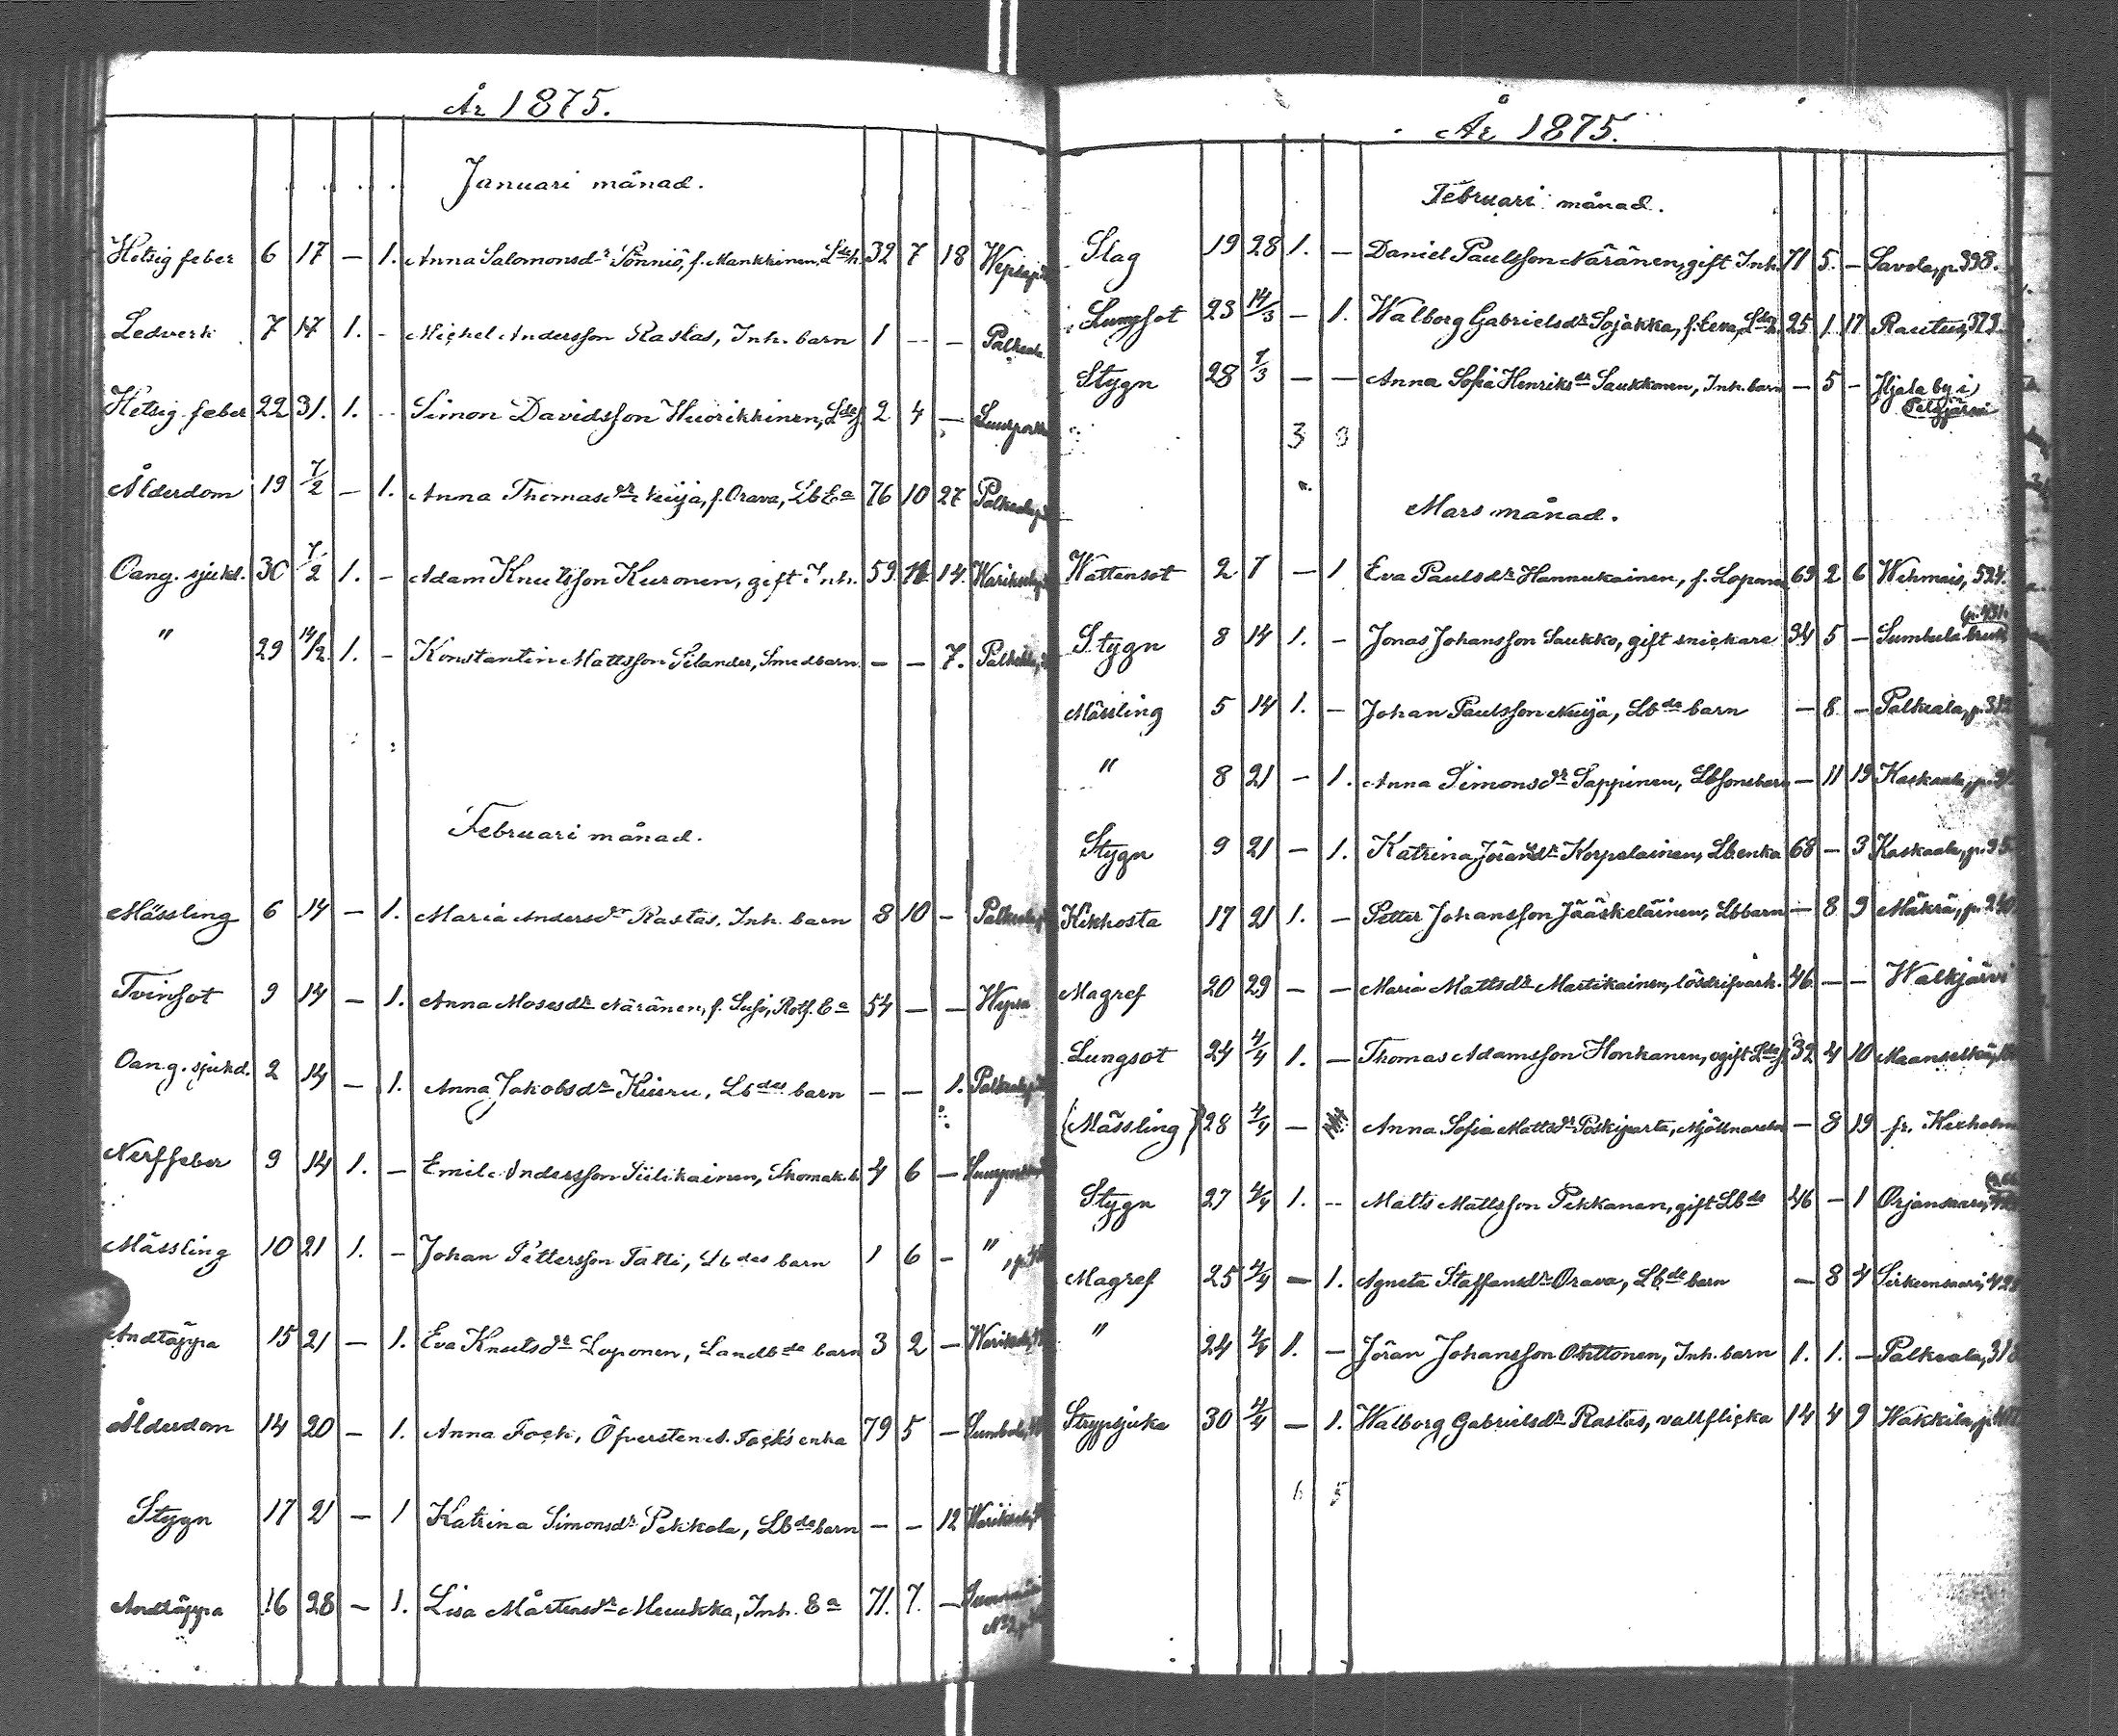 År 1875.
Januari månad.
Hetsig feber 6 17 — 1. Anna Salomonsdr Pönniö, f. Mankkinen, Ldeh. 32 7 18
Ledverk 7 17 1. - Michel Andersson Rastas, Inh. barn 1 - - Palkeala
Hetsig feber 22 31. 1. - Simon Davidsson Huorikkinen, 2 4 —
Ålderdom 19 7/2 — 1. Anna Thomasdr Nuija, f. Orava, Lb Ea 76 10 27 Palkeala
Oang. sjukd. 30 7/2 1. - Adam Knutsson Kuronen, gift Inh. 59. 14.
" 29 14/2 1. - Konstantin Mattsson Silander, Smedbarn — — 7. Palkeala
Februari månad.
Mässling 6 14 — 1. Maria Andersdr Rastas, Inh. barn 8 10 - Palkeala
Tvinsot 9 14 — 1. Anna Mosesdr Näränen, f. Susi, Rotf. Ea 54 — — Wepsa
Oang. sjukd. 2 14 — 1. Anna Jakobsdr Kiuru, Lbdes barn — — 1. Palkeala
Nerffeber 9 14 1. — Emil Andersson Siilikainen, Skomak. b. 4 6 —
Mässling 10 21 1. - Johan Pettersson Tatti, Lbdes barn 1 6 - "
Andtäppa 15 21 — 1. Eva Knutsdr Loponen, Landbde barn 3 2 —
Ålderdom 14 20 — 1. Anna Fock, Öfversten A. Fock's enka 79 5 — Sumbula
Stygn 17 21 — 1 Katrina Simonsdr Pekkola, Lbde barn — — 12
Andtäppa 16 28 — 1. Lisa Mårtensdr Meuukka, Inh. Ea 71. 7. —
År 1875.
Februari månad.
Slag 19 28 1. — Daniel Paulsson Näränen, gift Inh. 71 5. — Savola, p. 398.
Lungsot 23 14/3 — 1. Walborg Gabrielsdr Sojakka, f. Eeva, 25 1. 17 Rautus, 379.
Stygn 28 7/3 — — Anna Sofia Henriksdr Saukkonen, Inh. barn — 5 — Hjala by i
Pelgjärvi
3
Mars månad.
Wattensot 2 7 — 1 Eva Paulsdr Hannukainen, f. Loponen 69 2 6 Wehmais, 524.
Stygn 8 14 1. - Jonas Johansson Saukko, gift snickare 34 5 — Sumbula bruk
Mässling 5 14 1. — Johan Paulsson Nuija, Lbde barn — 8 — Palkeala, p. 312
" 8 21 — 1. Anna Simonsdr Sappinen, Lbsonebarn — 11 19 Kaskaala,
Stygn 9 21 — 1. Katrina Jöransdr Korpelainen, Lb.enka 68 — 3 Kaskaala, p. 95
Kikhosta 17 21 1. — Petter Johansson Jääskeläinen, Lbbarn — 8 9 Mäkrä, p. 240
Magref 20 29 — — Maria Mattsdr Martikainen, lösdrifvark. 46 — — Walkjärvi
Lungsot 24 4/4 1. — Thomas Adamsson Honkanen, gift 32 4 10 Maanselkä,
(Mässling) 28 4/4 — Anna Sofia Mattsdr Poskiparta, — 8 19 fr. Kexholm
Stygn 27 4/4 1. - Matts Mattsson Pekkanen, gift Lbde 46 — 1 Orjansaari,
Magref 25 4/4 — 1. Agneta Staffansdr Orava, Lbde barn — 8 4 Sirkensaari, 428
" 24 4/4 1. — Jöran Johansson Ovittonen, Inh. barn 1. 1. — Palkeala, 318
Strypsjuka 30 4/4 — 1. Walborg Gabrielsdr Rastas, vallflicka 14 4 9 Wakkila,
6 5